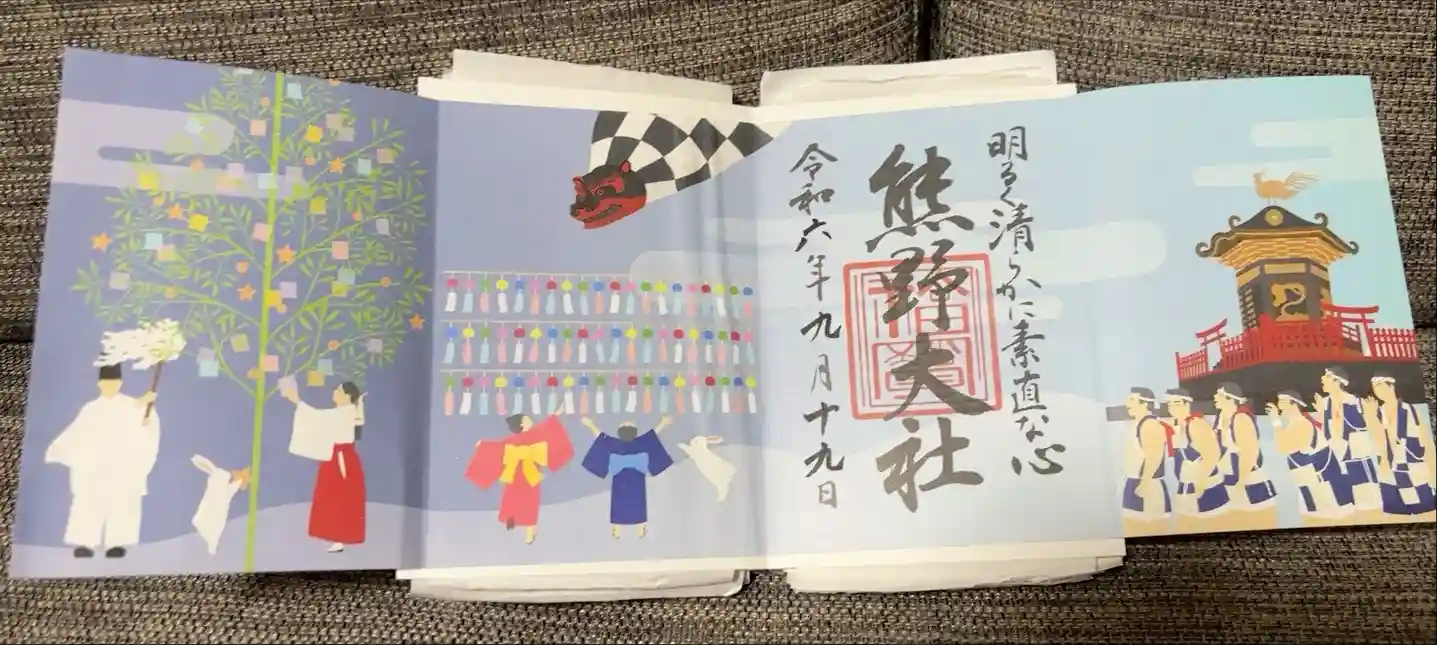 明るく清らかに素直な心
熊野大社
令和六年九月十九日